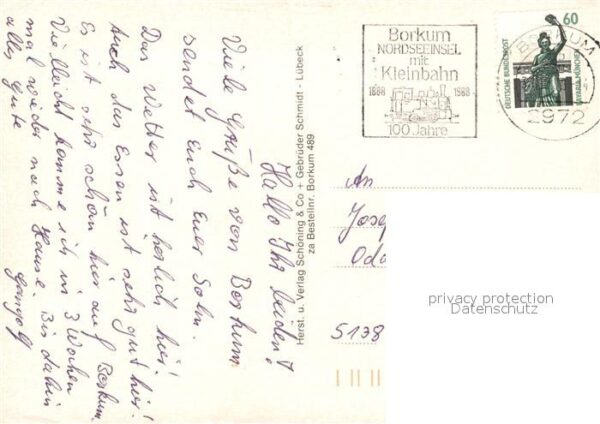 Hallo Ihr beiden!
Viele Grüße von Borkum
sendet Euch Euer Sohn.
Das Wetter ist herlich hier.
Auch das Essen ist sehr gut hier!
Es ist sehr schön hier auf Borkum.
Vielleicht komme ich in 3 Wochen
mal wieder nach Hause. Bis dahin
alles Gute
Herst. u. Verlag Schöning & Co + Gebrüder Schmidt - Lübeck
za Bestellnr. Borkum 489
Borkum
NORDSEEINSEL
mit
Kleinbahn
1888 1988
100 Jahre
60
DEUTSCHE BUNDESPOST
BAVARIA MÜNCHEN
BORKUM
2972
An
Josep
Oda
5138
privacy protection
Datenschutz